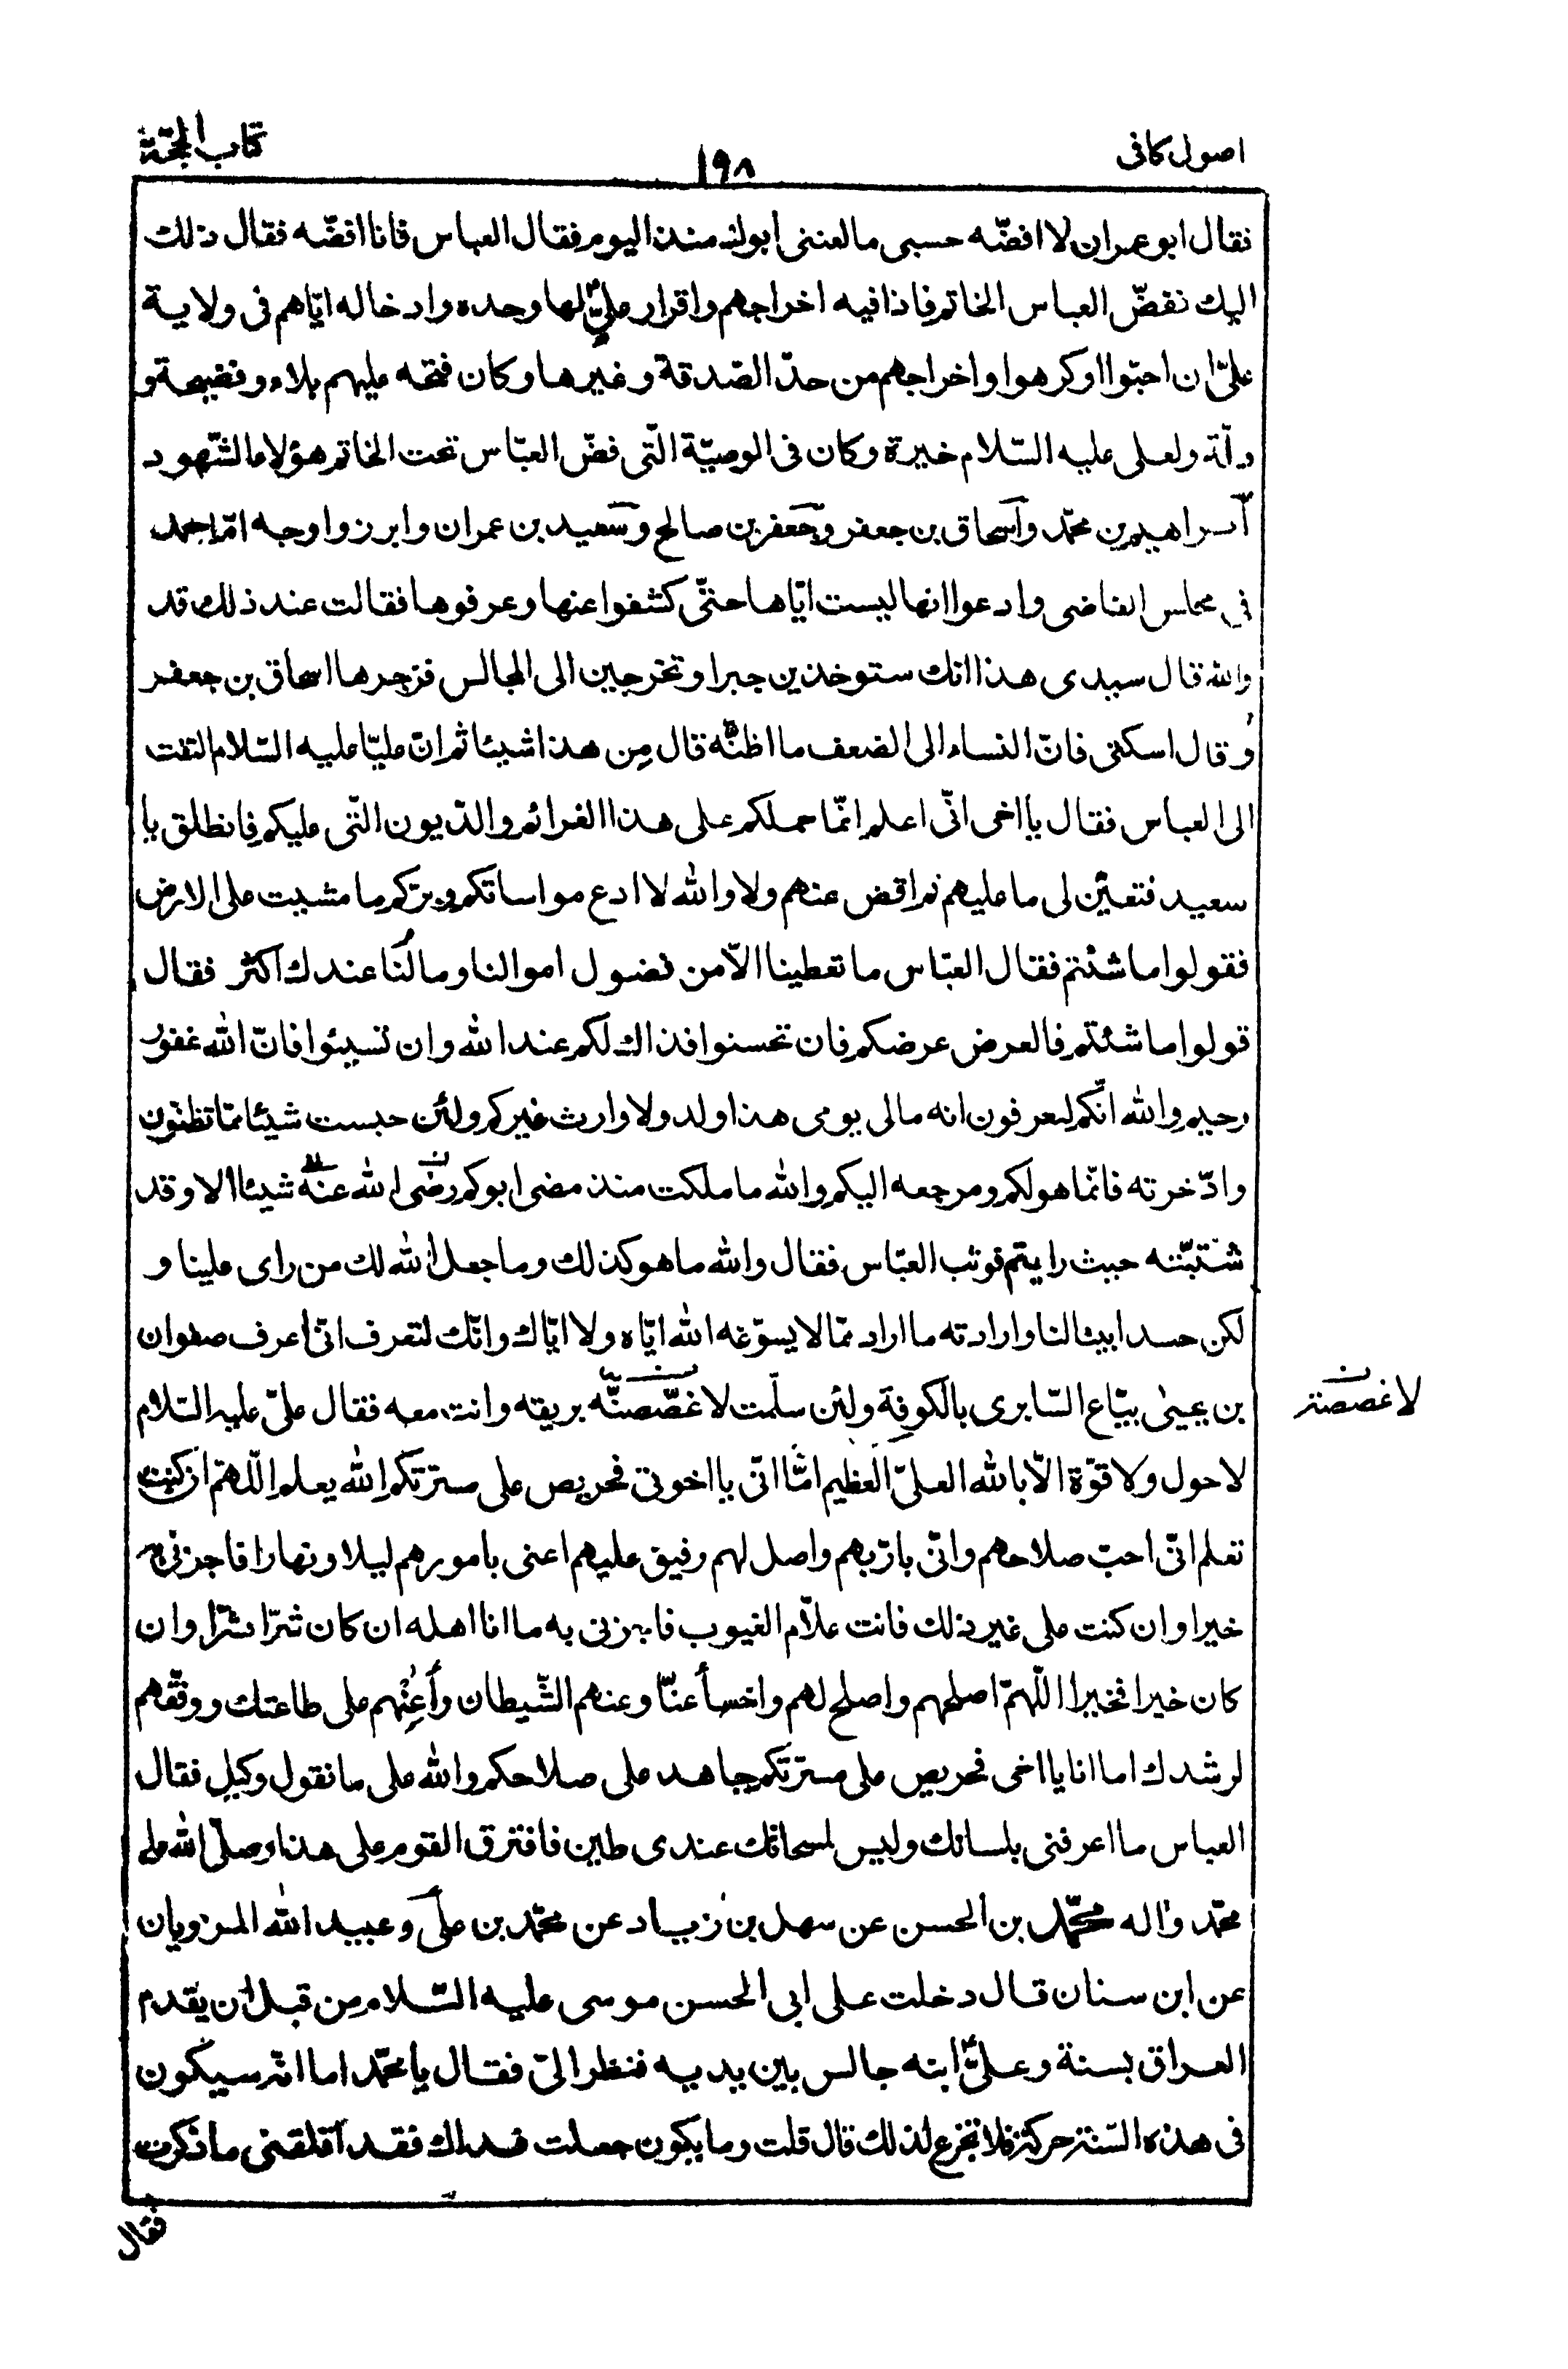 اصول كافى
١٩٨
كتاب الحجّة
فقال ابو عمران لا افضّه حسبى ما لعننى ابوك منذ اليوم فقال العباس فانا افضّه فقال ذلك
اليك نفضّ العباس الخاتم فاذا فيه اخراجهم واقرار علىّ لها وحده وادخاله ايّاهم فى ولاية
علىّ ان احبّوا او كرهوا واخراجهم من حدّ الصّدقة وغيرها وكان فتحه عليهم بلاء وفضيحة و
ذلّة ولعلى عليه السّلام خيرة وكان فى الوصيّة الّتى فضّ العبّاس تحت الخاتم هؤلاء الشّهود
ابراهيم بن محمّد واسحاق بن جعفر وجعفر بن صالح وسعيد بن عمران وابرزوا وجه امّ احمد
فى مجلس القاضى وادعوا انها ليست ايّاها حتّى كشفوا عنها وعرفوها فقالت عند ذلك قد
والله قال سيدى هذا انك ستوخذين جبرا وتخرجين الى المجالس فزجرها اسحاق بن جعفر
وقال اسكتى فانّ النساء الى الضعف ما اظنّه قال من هذا شيئا ثم انّ عليّا عليه السّلام التفت
الى العباس فقال يا اخى انّى اعلم انّما حملكم على هذا الغرائم والدّيون الّتى عليكم فانطلق يا
سعيد فتعيّن لى ما عليهم ثم اقض عنهم ولا والله لا ادع مواساتكم وبرّكم ما مشيت على الارض
فقولوا ما شئتم فقال العبّاس ما تعطينا الّا من فضول اموالنا وما لنا عندك اكثر فقال
قولوا ما شئتم فالعرض عرضكم فان تحسنوا فذاك لكم عند الله وان تسيئوا فانّ الله غفور
رحيم والله انّكم لتعرفون انه مالى يومى هذا ولد ولا وارث غيركم ولئن حبست شيئا ممّا تظنّون
وادّخرته فانّما هو لكم ومرجعه اليكم والله ما ملكت منذ مضى ابوكم رضى الله عنه شيئا الا وقد
شتبّته حيث رايتم فوثب العبّاس فقال والله ما هو كذلك وما جعل الله لك من راى علينا و
لكن حسد ابينا لنا وارادته ما اراد ممّا لا يسوّغه الله ايّاه ولا ايّاك وانّك لتعرف انّى اعرف صفوان
بن يحيىٰ بيّاع السّابرى بالكوفة ولئن سلّمت لاغصّصنّه بريقه وانت معه فقال علىّ عليه السّلام
لاغصصنّه
لا حول ولا قوّة الّا بالله العلىّ العظيم امّا انّى يا اخوتى فحريص على مسرّتكم الله يعلم اللّهمّ ان كنت
تعلم انّى احبّ صلاحهم وانّى بارّ بهم واصل لهم رفيق عليهم اعنى بامورهم ليلا ونهارا فاجزنى به
خيرا وان كنت على غير ذلك فانت علاّم الغيوب فاجزنى به ما انا اهله ان كان شرّا شرّا وان
كان خيرا فخيرا اللّهمّ اصلحهم واصلح لهم واخسأ عنّا وعنهم الشّيطان وأعِنْهم على طاعتك ووفّقهم
لرشدك اما انا يا اخى فحريص على مسرّتكم جاهد على صلاحكم والله على ما نقول وكيل فقال
العباس ما اعرفنى بلسانك وليس لمسحاتك عندى طين فافترق القوم على هذا وصلّى الله على
محمّد وآله محمّد بن الحسن عن سهل بن زياد عن محمّد بن علىّ وعبيد الله المرزويان
عن ابن سنان قال دخلت على ابى الحسن موسى عليه السّلام من قبل ان يقدم
العراق بسنة وعلىّ ابنه جالس بين يديه فنظر الىّ فقال يا محمّد اما انّه سيكون
فى هذه السّنة حركة فلا تجزع لذلك قال قلت وما يكون جعلت فداك فقد اقلقنى ما ذكرت
فقال